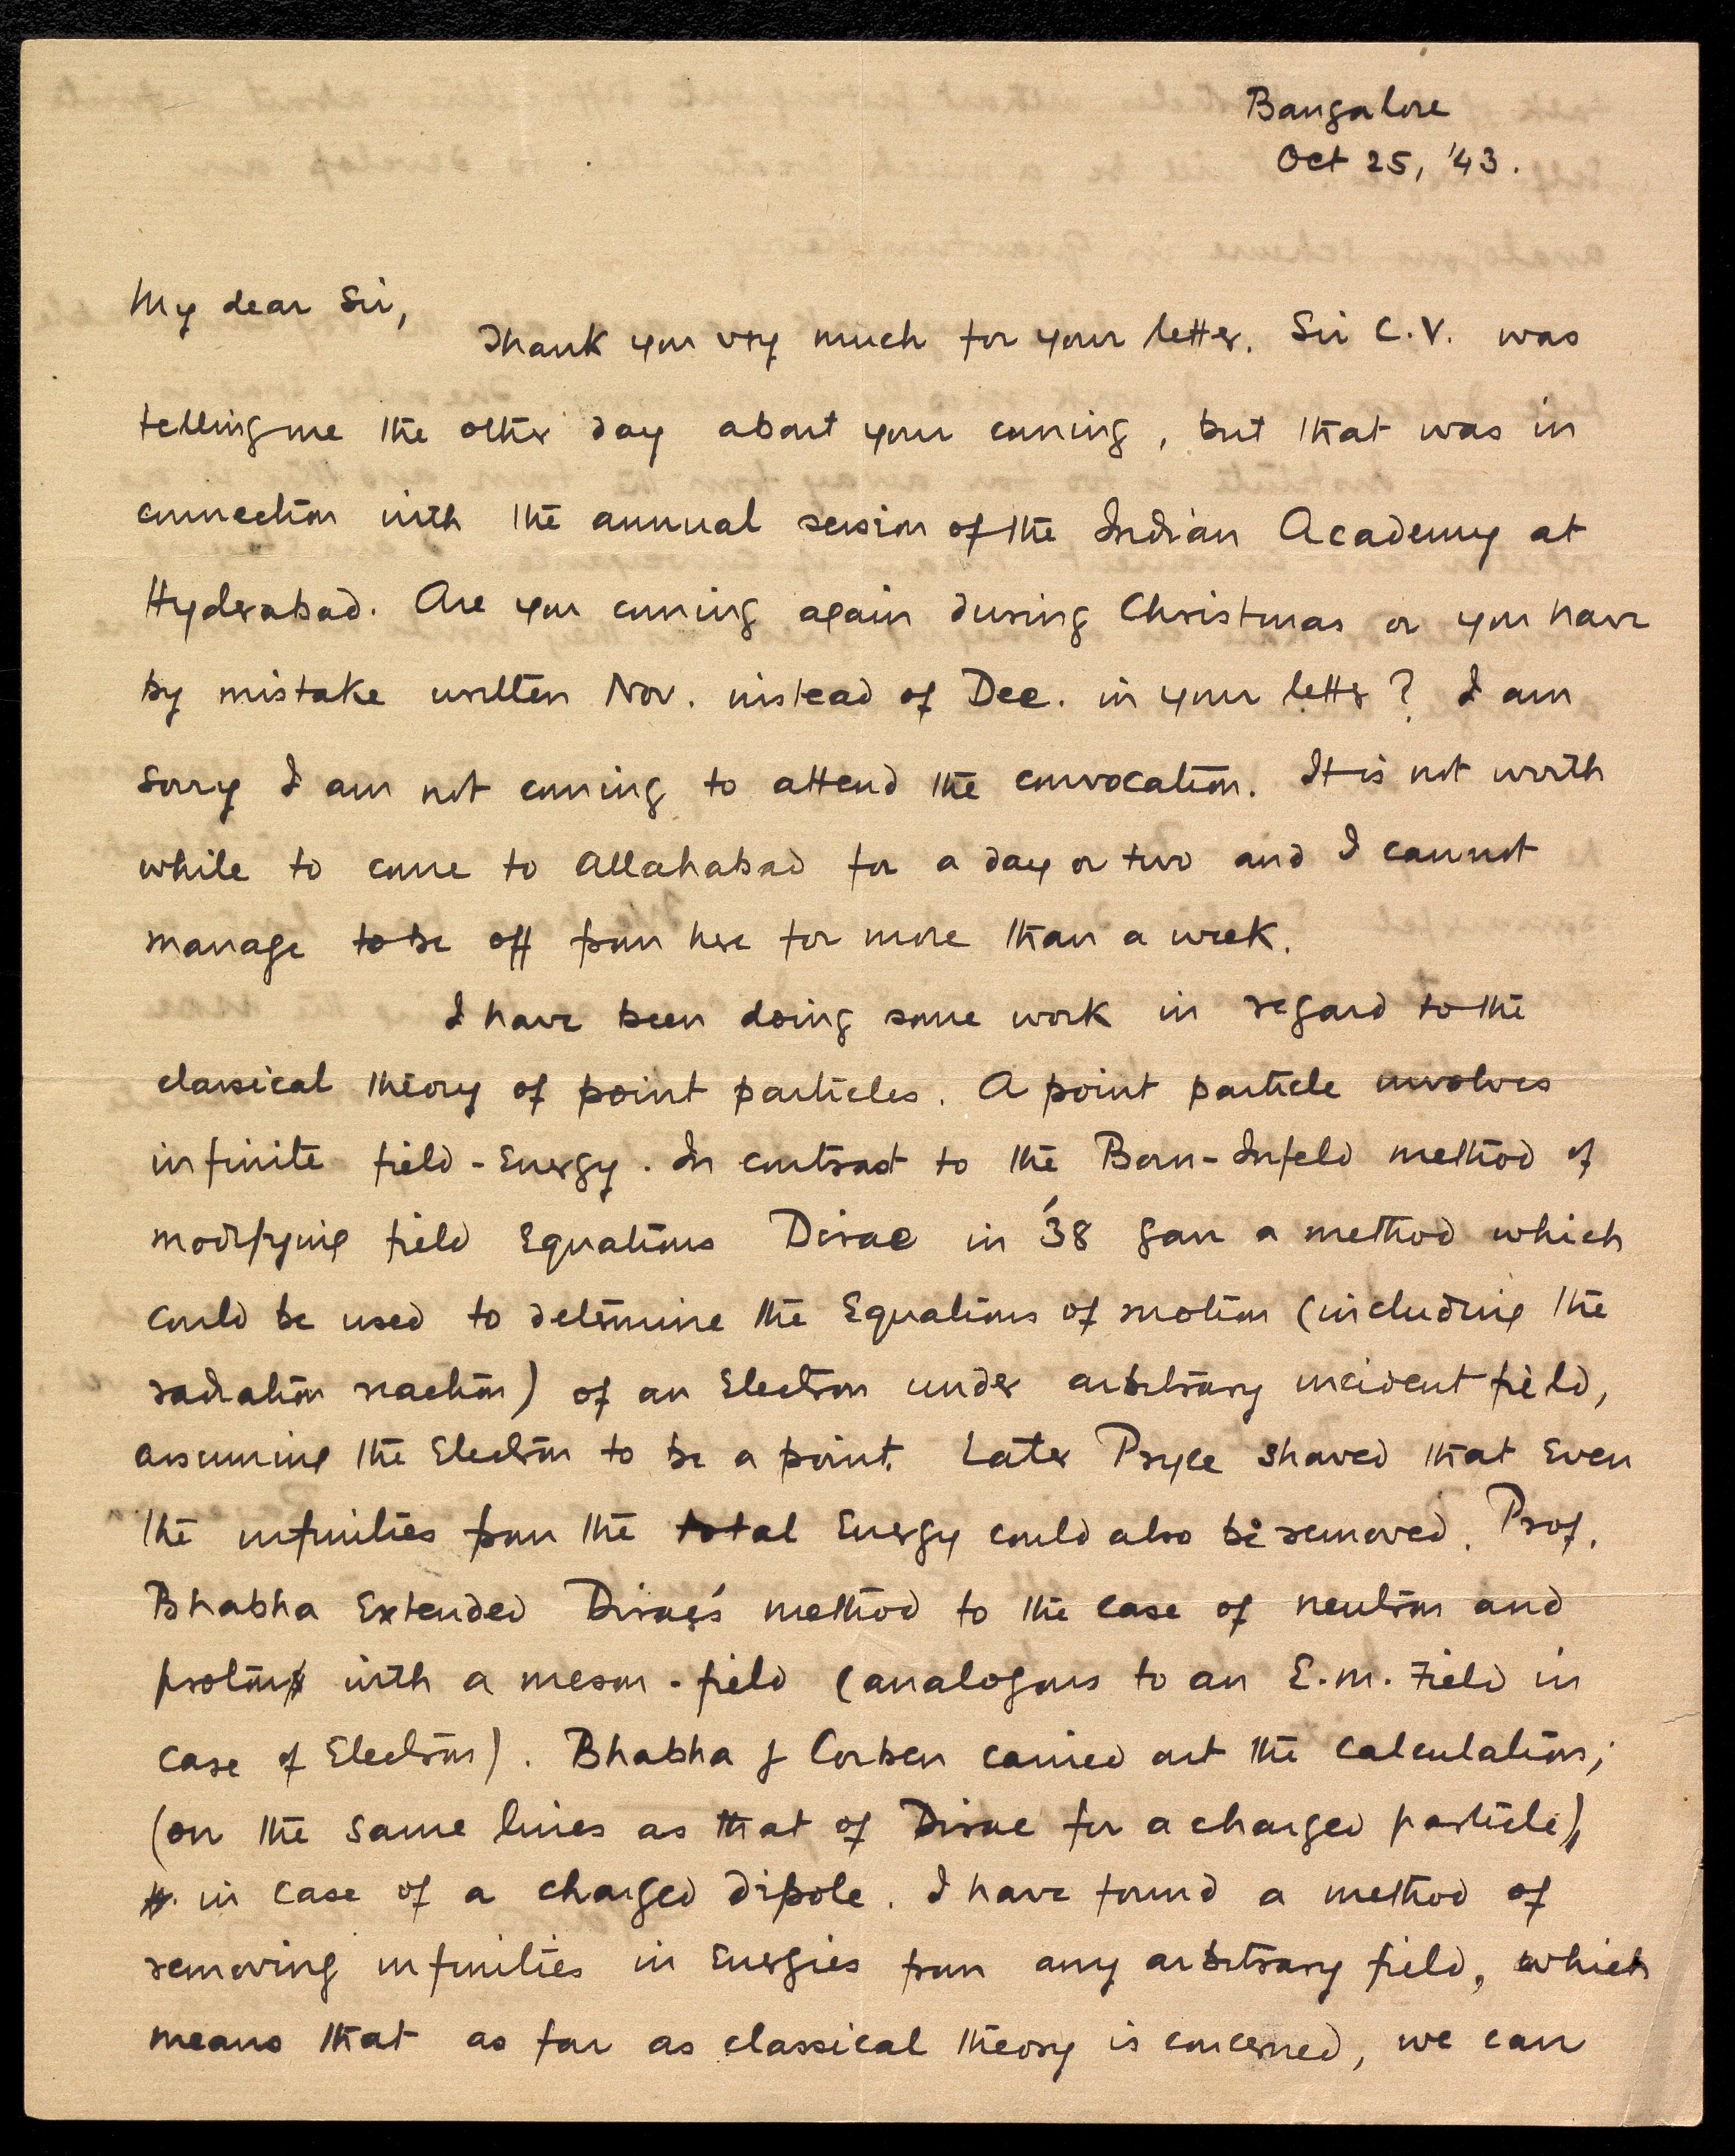 Bangalore
Oct 25, '43.
My dear Sir,
Thank you very much for your letter. Sir C.V. was
telling me the other day about your coming, but that was in
connection with the annual session of the Indian Academy at
Hyderabad. Are you coming again during Christmas or you have
by mistake written Nov. instead of Dec. in your letter? I am
sorry I am not coming to attend the convocation. It is not worth
while to come to Allahabad for a day or two and I cannot
manage to be off from here for more than a week.
I have been doing some work in regard to the
classical theory of point particles. A point particle involves
infinite field-energy. In contrast to the Born-Infeld method of
modifying field Equations Dirac in '38 gave a method which
could be used to determine the Equations of motion (including the
radiation reaction) of an Electron under arbitrary incident field,
assuming the Electron to be a point. Later Pryce showed that Even
the infinities from the total Energy could also be removed. Prof.
Bhabha Extended Dirac's method to the case of neutron and
proton with a meson-field (analogous to an E.M. Field in
case of Electron). Bhabha & Corben carried out the calculations;
(on the same lines as that of Dirac for a charged particle),
in case of a charged dipole. I have found a method of
removing infinities in Energies from any arbitrary field, which
means that as far as classical theory is concerned, we can